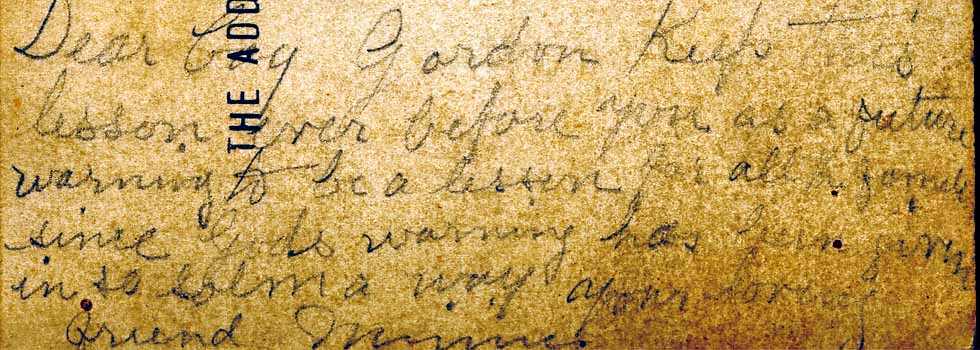 Dear Boy Gordon Keep this
lesson ever before you as a future
warning to be a lesson for all
since Gods warning has been given
in so solmn a way your loving
friend Minnie
THE ADD